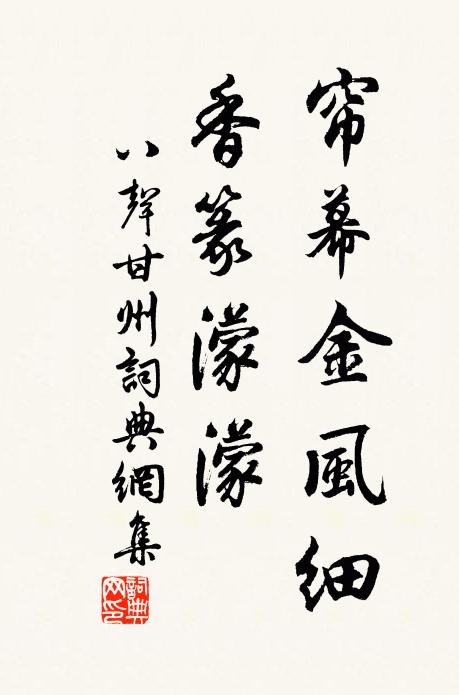 帘幕金風細
香篆濛濛
八聲甘州詞典網集
詞典网印